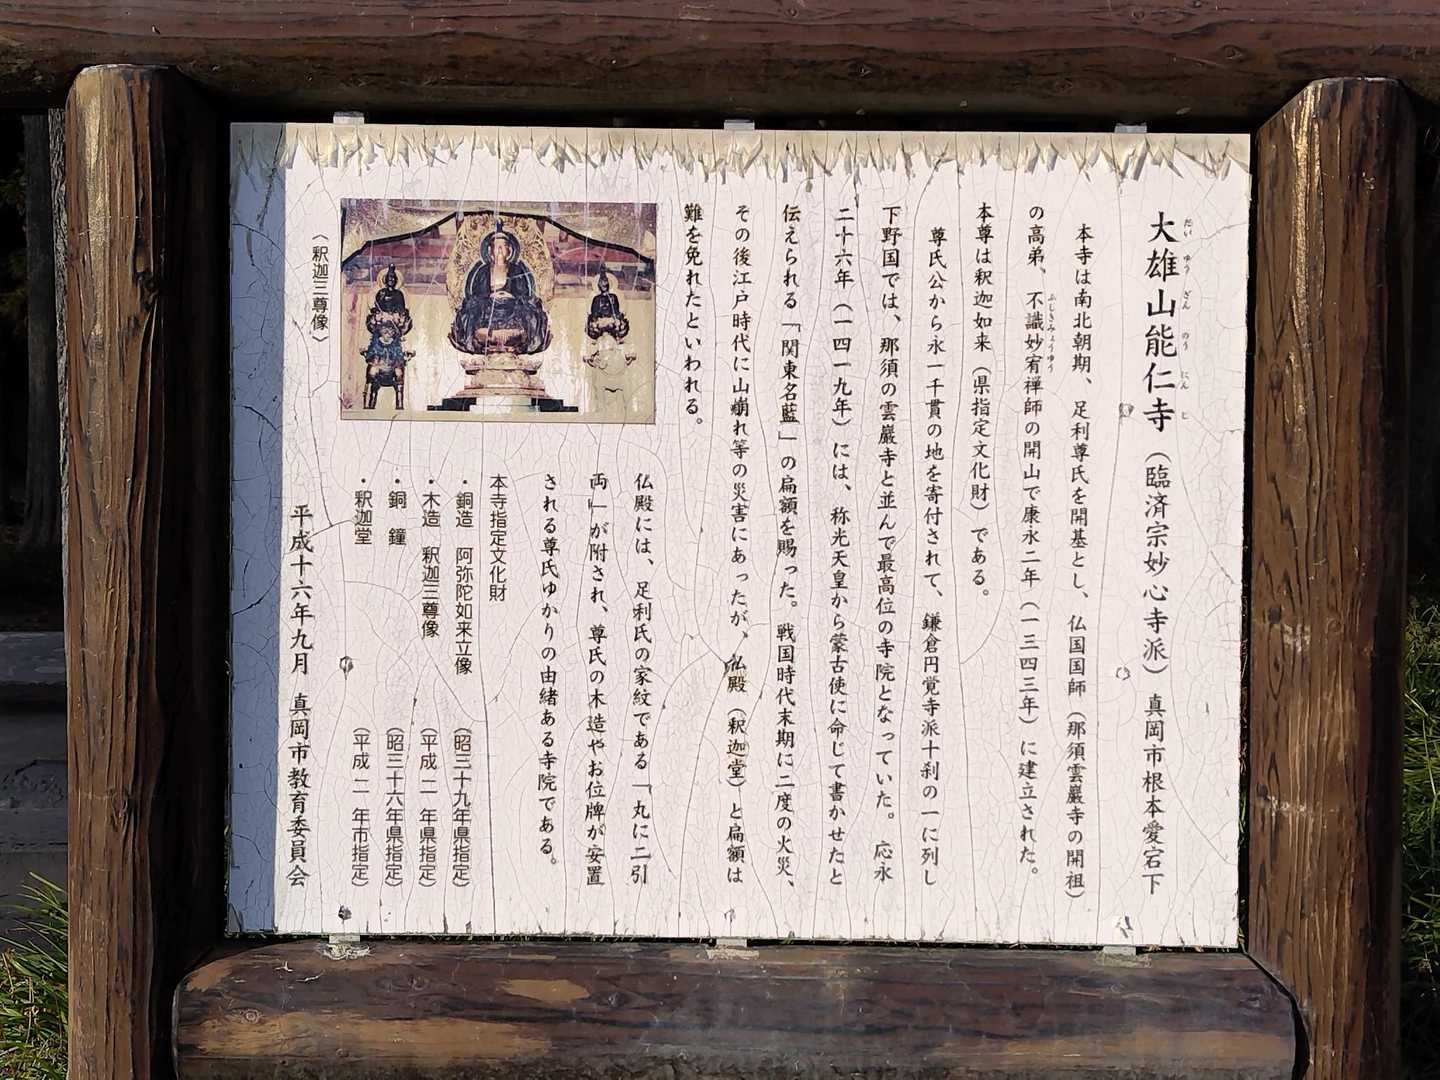 大雄山能仁寺（臨済宗妙心寺派）　真岡市根本愛宕下
だい ゆう ざん のう にん じ
本寺は南北朝期、足利尊氏を開基とし、仏国国師（那須雲巖寺の開祖）
の高弟、不識妙宥禅師の開山で康永二年（一三四三年）に建立された。
ふしきみょうゆう
本尊は釈迦如来（県指定文化財）である。
尊氏公から永一千貫の地を寄付されて、鎌倉円覚寺派十刹の一に列し
下野国では、那須の雲巖寺と並んで最高位の寺院となっていた。応永
二十六年（一四一九年）には、称光天皇から蒙古使に命じて書かせたと
伝えられる「関東名藍」の扁額を賜った。戦国時代末期に二度の火災、
その後江戸時代に山崩れ等の災害にあったが、仏殿（釈迦堂）と扁額は
難を免れたといわれる。
仏殿には、足利氏の家紋である「丸に二引
両」が附され、尊氏の木造やお位牌が安置
される尊氏ゆかりの由緒ある寺院である。
本寺指定文化財
・銅造　阿弥陀如来立像　（昭三十九年県指定）
・木造　釈迦三尊像　（平成　二　年県指定）
・銅　鐘　（昭三十六年県指定）
・釈迦堂　（平成　二　年市指定）
〈釈迦三尊像〉
平成十六年九月　真岡市教育委員会